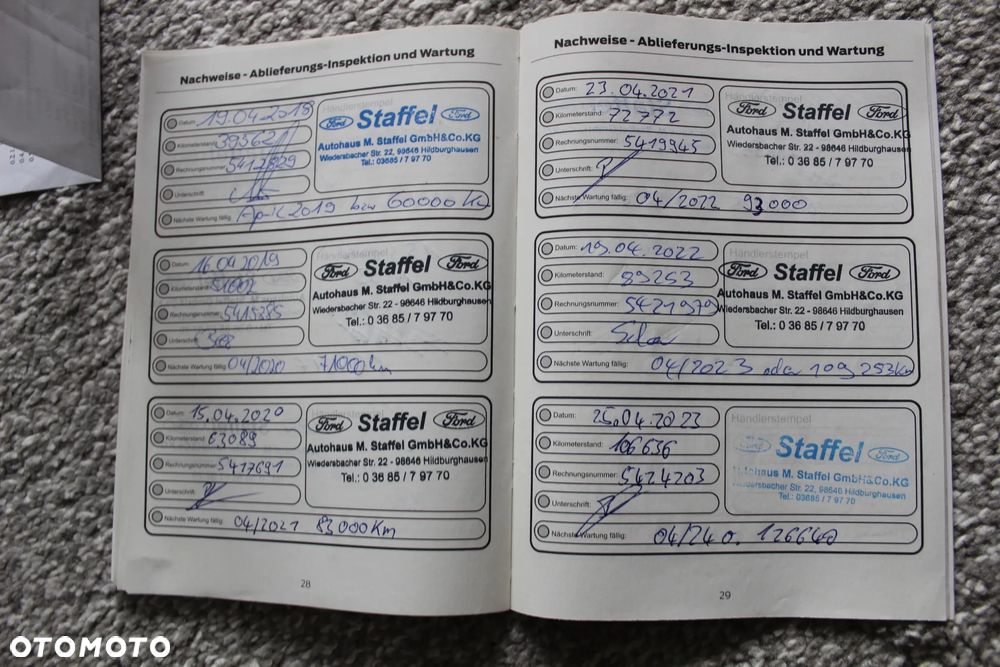 Nachweise - Ablieferungs-Inspektion und Wartung
Datum: 19.04.2018
Kilometerstand:
Rechnungsnummer:
Unterschrift:
Nächste Wartung fällig: April 2019 bzw 60000 Km
Händlerstempel
Ford Staffel Ford
Autohaus M. Staffel GmbH&Co.KG
Wiedersbacher Str. 22, 98646 Hildburghausen
Tel.: 03685 / 7 97 70
Datum: 16.04.2019
Kilometerstand:
Rechnungsnummer: 5415285
Unterschrift:
Nächste Wartung fällig: 04/2020 71000 km
Händlerstempel
Ford Staffel Ford
Autohaus M. Staffel GmbH&Co.KG
Wiedersbacher Str. 22 - 98646 Hildburghausen
Tel.: 0 36 85 / 7 97 70
Datum: 15.04.2020
Kilometerstand: 63089
Rechnungsnummer: 5417691
Unterschrift:
Nächste Wartung fällig: 04/2021 83000 Km
Händlerstempel
Ford Staffel Ford
Autohaus M. Staffel GmbH&Co.KG
Wiedersbacher Str. 22 - 98646 Hildburghausen
Tel.: 0 36 85 / 7 97 70
28
Nachweise - Ablieferungs-Inspektion und Wartung
Datum: 23.04.2021
Kilometerstand: 72772
Rechnungsnummer: 5419945
Unterschrift:
Nächste Wartung fällig: 04/2022 93000
Ford Staffel Ford
Autohaus M. Staffel GmbH&Co.KG
Wiedersbacher Str. 22, 98646 Hildburghausen
Tel.: 0 36 85 / 7 97 70
Datum: 19.04.2022
Kilometerstand: 89253
Rechnungsnummer: 5421979
Unterschrift:
Nächste Wartung fällig: 04/2023 oder 109253km
Händlerstempel
Ford Staffel Ford
Autohaus M. Staffel GmbH&Co.KG
Wiedersbacher Str. 22 - 98646 Hildburghausen
Tel.: 0 36 85 / 7 97 70
Datum: 25.04.2023
Kilometerstand: 106636
Rechnungsnummer: 5424203
Unterschrift:
Nächste Wartung fällig: 04/24 o. 126640
Händlerstempel
Ford Staffel Ford
Autohaus M. Staffel GmbH&Co.KG
Wiedersbacher Str. 22, 98646 Hildburghausen
Tel.: 03685 / 7 97 70
29
OTOMOTO